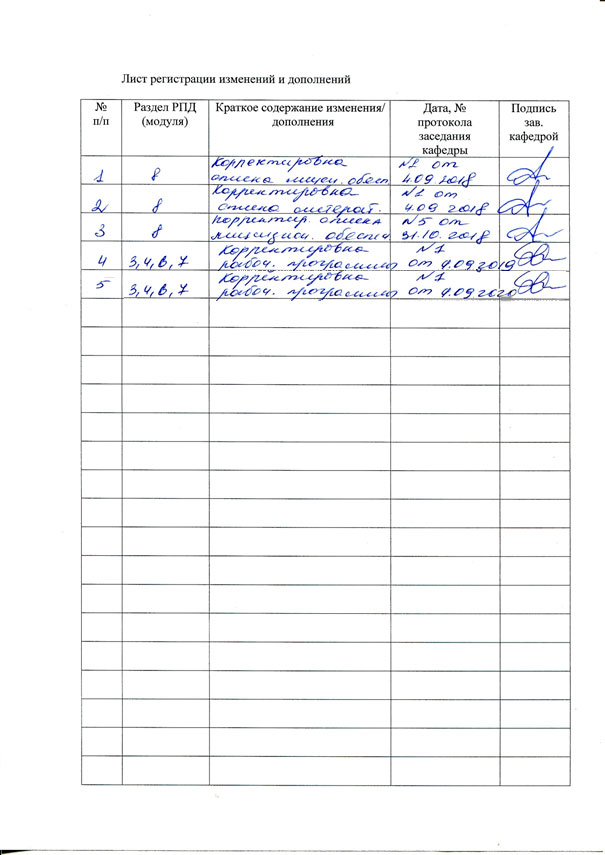 Лист регистрации изменений и дополнений
№ п/п
Раздел РПД (модуля)
Краткое содержание изменения/ дополнения
Дата, № протокола заседания кафедры
Подпись зав. кафедрой
1 8 Корректировка №1 от
списка лицен. обесп 4.09 2018
2 8 Корректировка №1 от
списка литерат. 4.09 2018
3 8 корректир. списка №5 от
лицензион. обеспеч. 31.10.2018
4 3,4,6,7 Корректировка №1
рабоч. программы от 9.09 2019
5 3,4,6,7 Корректировка №1
рабоч. программы от 9.09 2020